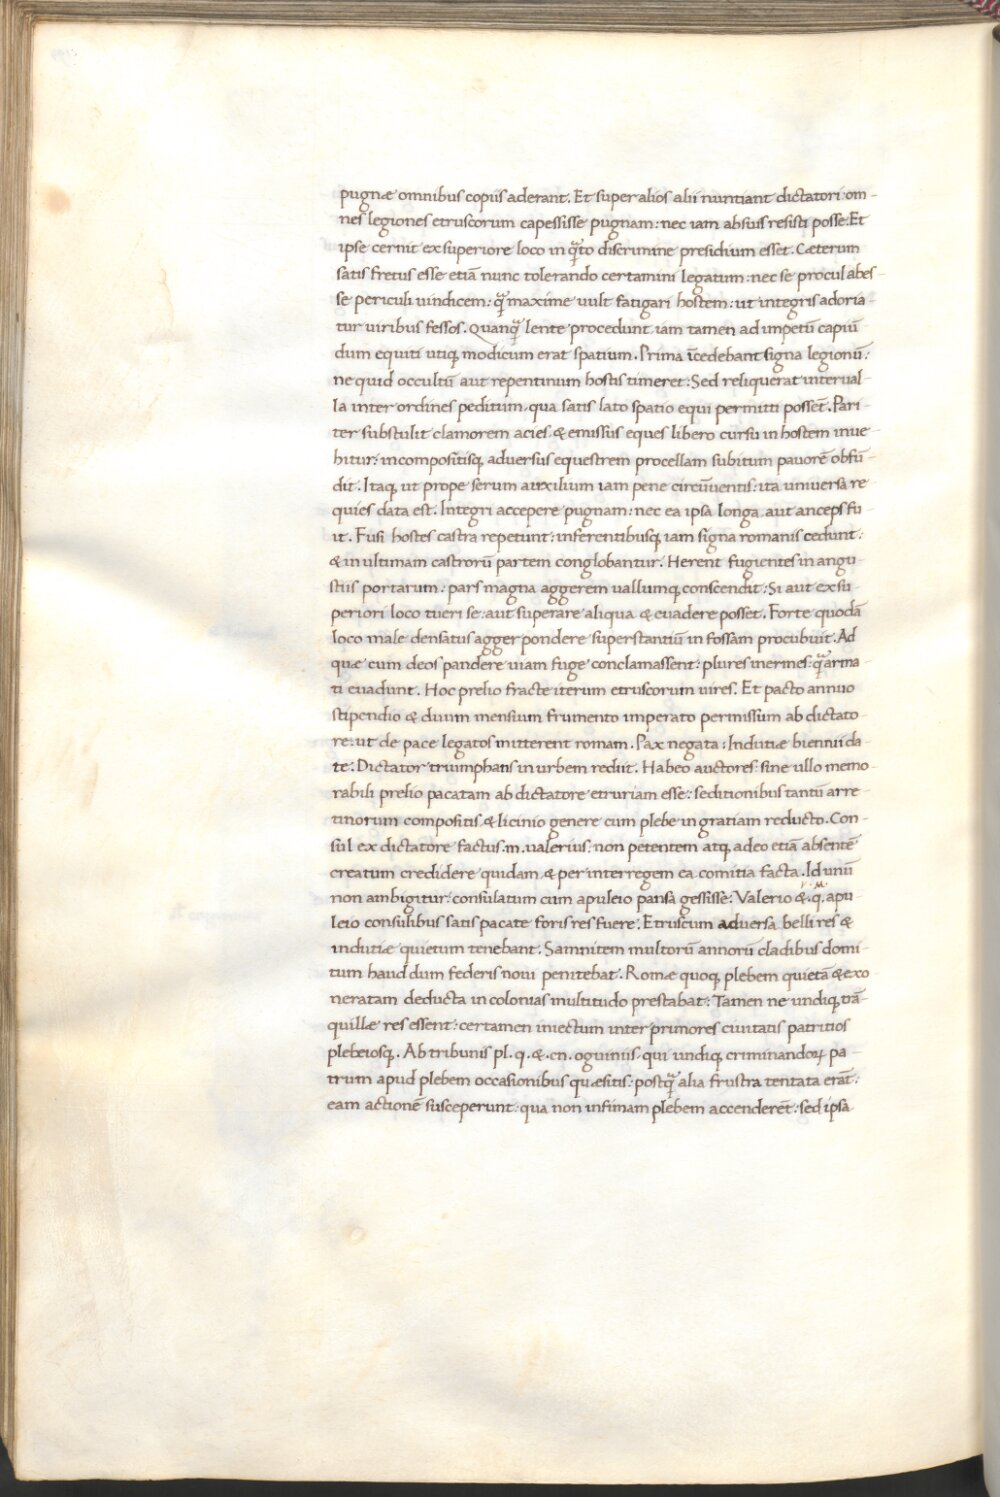 pugnæ omnibus copiis aderant. Et super alios alii nuntiant dictatori om-
nes legiones etruscorum capessisse pugnam: nec iam ab suis resisti posse. Et
ipse cernit ex superiore loco in q̄to discrimine presidium esset. Cæterum
satis fretus esse etiā nunc tolerando certamini legatum: nec se procul abes-
se periculi uindicem: q̄ maxime uult fatigari hostem: ut integris adoria-
tur uiribus fessos. Quanq̄ lente procedunt iam tamen ad impetū capiū
dum equiti utiq; modicum erat spatium. Prima īcedebant signa legionū:
ne quid occultū aut repentinum hostis timeret: Sed reliquerat interual-
la inter ordines peditum, qua satis lato spatio equi permitti possēt. Pari-
ter substulit clamorem acies, & emissus eques libero cursu in hostem inue-
hitur: incompositisq; aduersus equestrem procellam subitum pauorē obfū-
dit. Itaq; ut prope serum auxilium iam pene circūuentis: ita uniuersa re
quies data est. Integri accepere pugnam: nec ea ipsa longa aut anceps fu-
it. Fusi hostes castra repetunt: inferentibusq; iam signa romanis cedunt:
& in ultimam castrorū partem conglobantur. Herent fugientes in angu-
stiis portarum: pars magna aggerem uallumq; conscendit: Si aut ex su-
periori loco tueri se: aut superare aliqua & euadere posset. Forte quodā
loco male densatus agger pondere superstantiū in fossam procubuit. Ad
quæ cum deos pandere uiam fuge conclamassent: plures inermes: q̄ arma-
ti euadunt. Hoc prelio fracte iterum etruscorum uires. Et pacto annuo
stipendio & duum mensium frumento imperato permissum ab dictato-
re: ut de pace legatos mitterent romam. Pax negata: Indutiæ biennii da-
te: Dictator triumphans in urbem rediit. Habeo auctores: sine ullo memo-
rabili prelio pacatam ab dictatore etruriam esse: seditionibus tantū arre-
tinorum compositis, & licinio genere cum plebe in gratiam reducto. Con-
sul ex dictatore factus .m. ualerius: non petentem atq; adeo etiā absentē
creatum credidere quidam, & per interregem ea comitia facta. Id unū
non ambigitur: consulatum cum apuleio pansa gessisse: Valerio &.q. apu-
leio consulibus satis pacate foris res fuere: Etruscum aduersa belli res &
indutiæ quietum tenebant. Samnitem multorū annorū cladibus domi-
tum haud dum federis noui penitebat. Romæ quoq; plebem quietā & exo
neratam deducta in colonias multitudo prestabat: Tamen ne undiq; trā-
quillæ res essent: certamen iniectum inter primores ciuitatis patritios
plebeiosq;. Ab tribunis pl. q. &. cn. oguiniis, qui undiq; criminandoꝝ pa-
trum apud plebem occasionibus quæsitis: postq̄ alia frustra tentata erāt:
eam actionē susceperunt: qua non infimam plebem accenderēt: sed ipsa